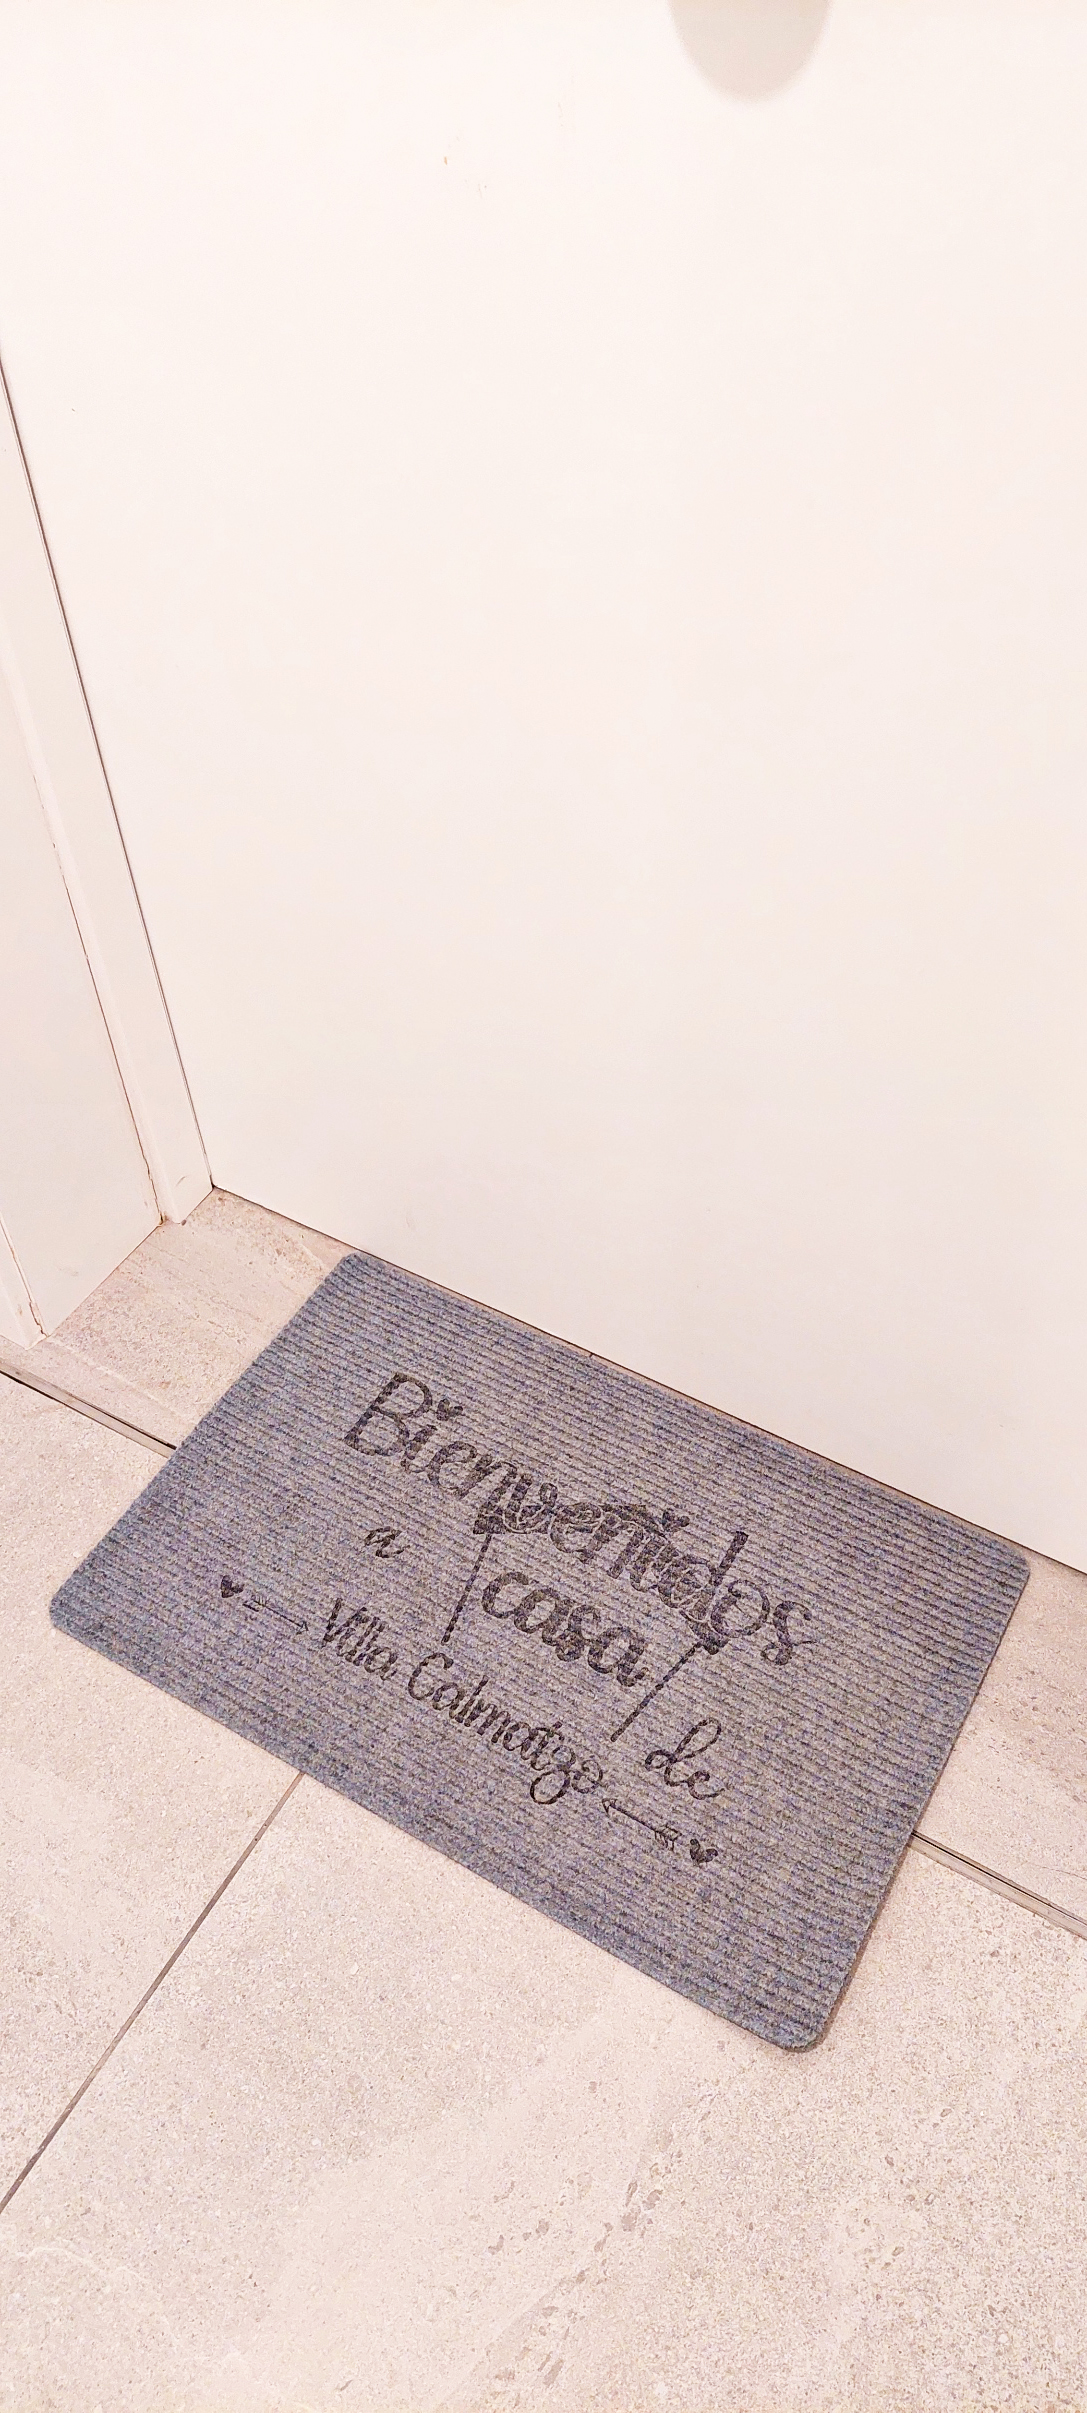 Bienvenidos
a casa de
Villa Calmatzo